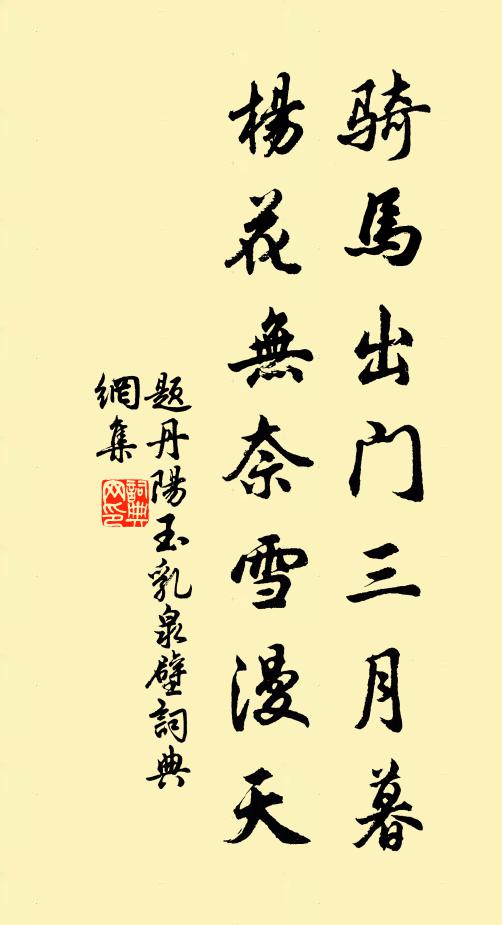 騎馬出门三月暮
楊花無奈雪漫天
题丹陽玉乳泉壁詞典
網集
詞典
网印